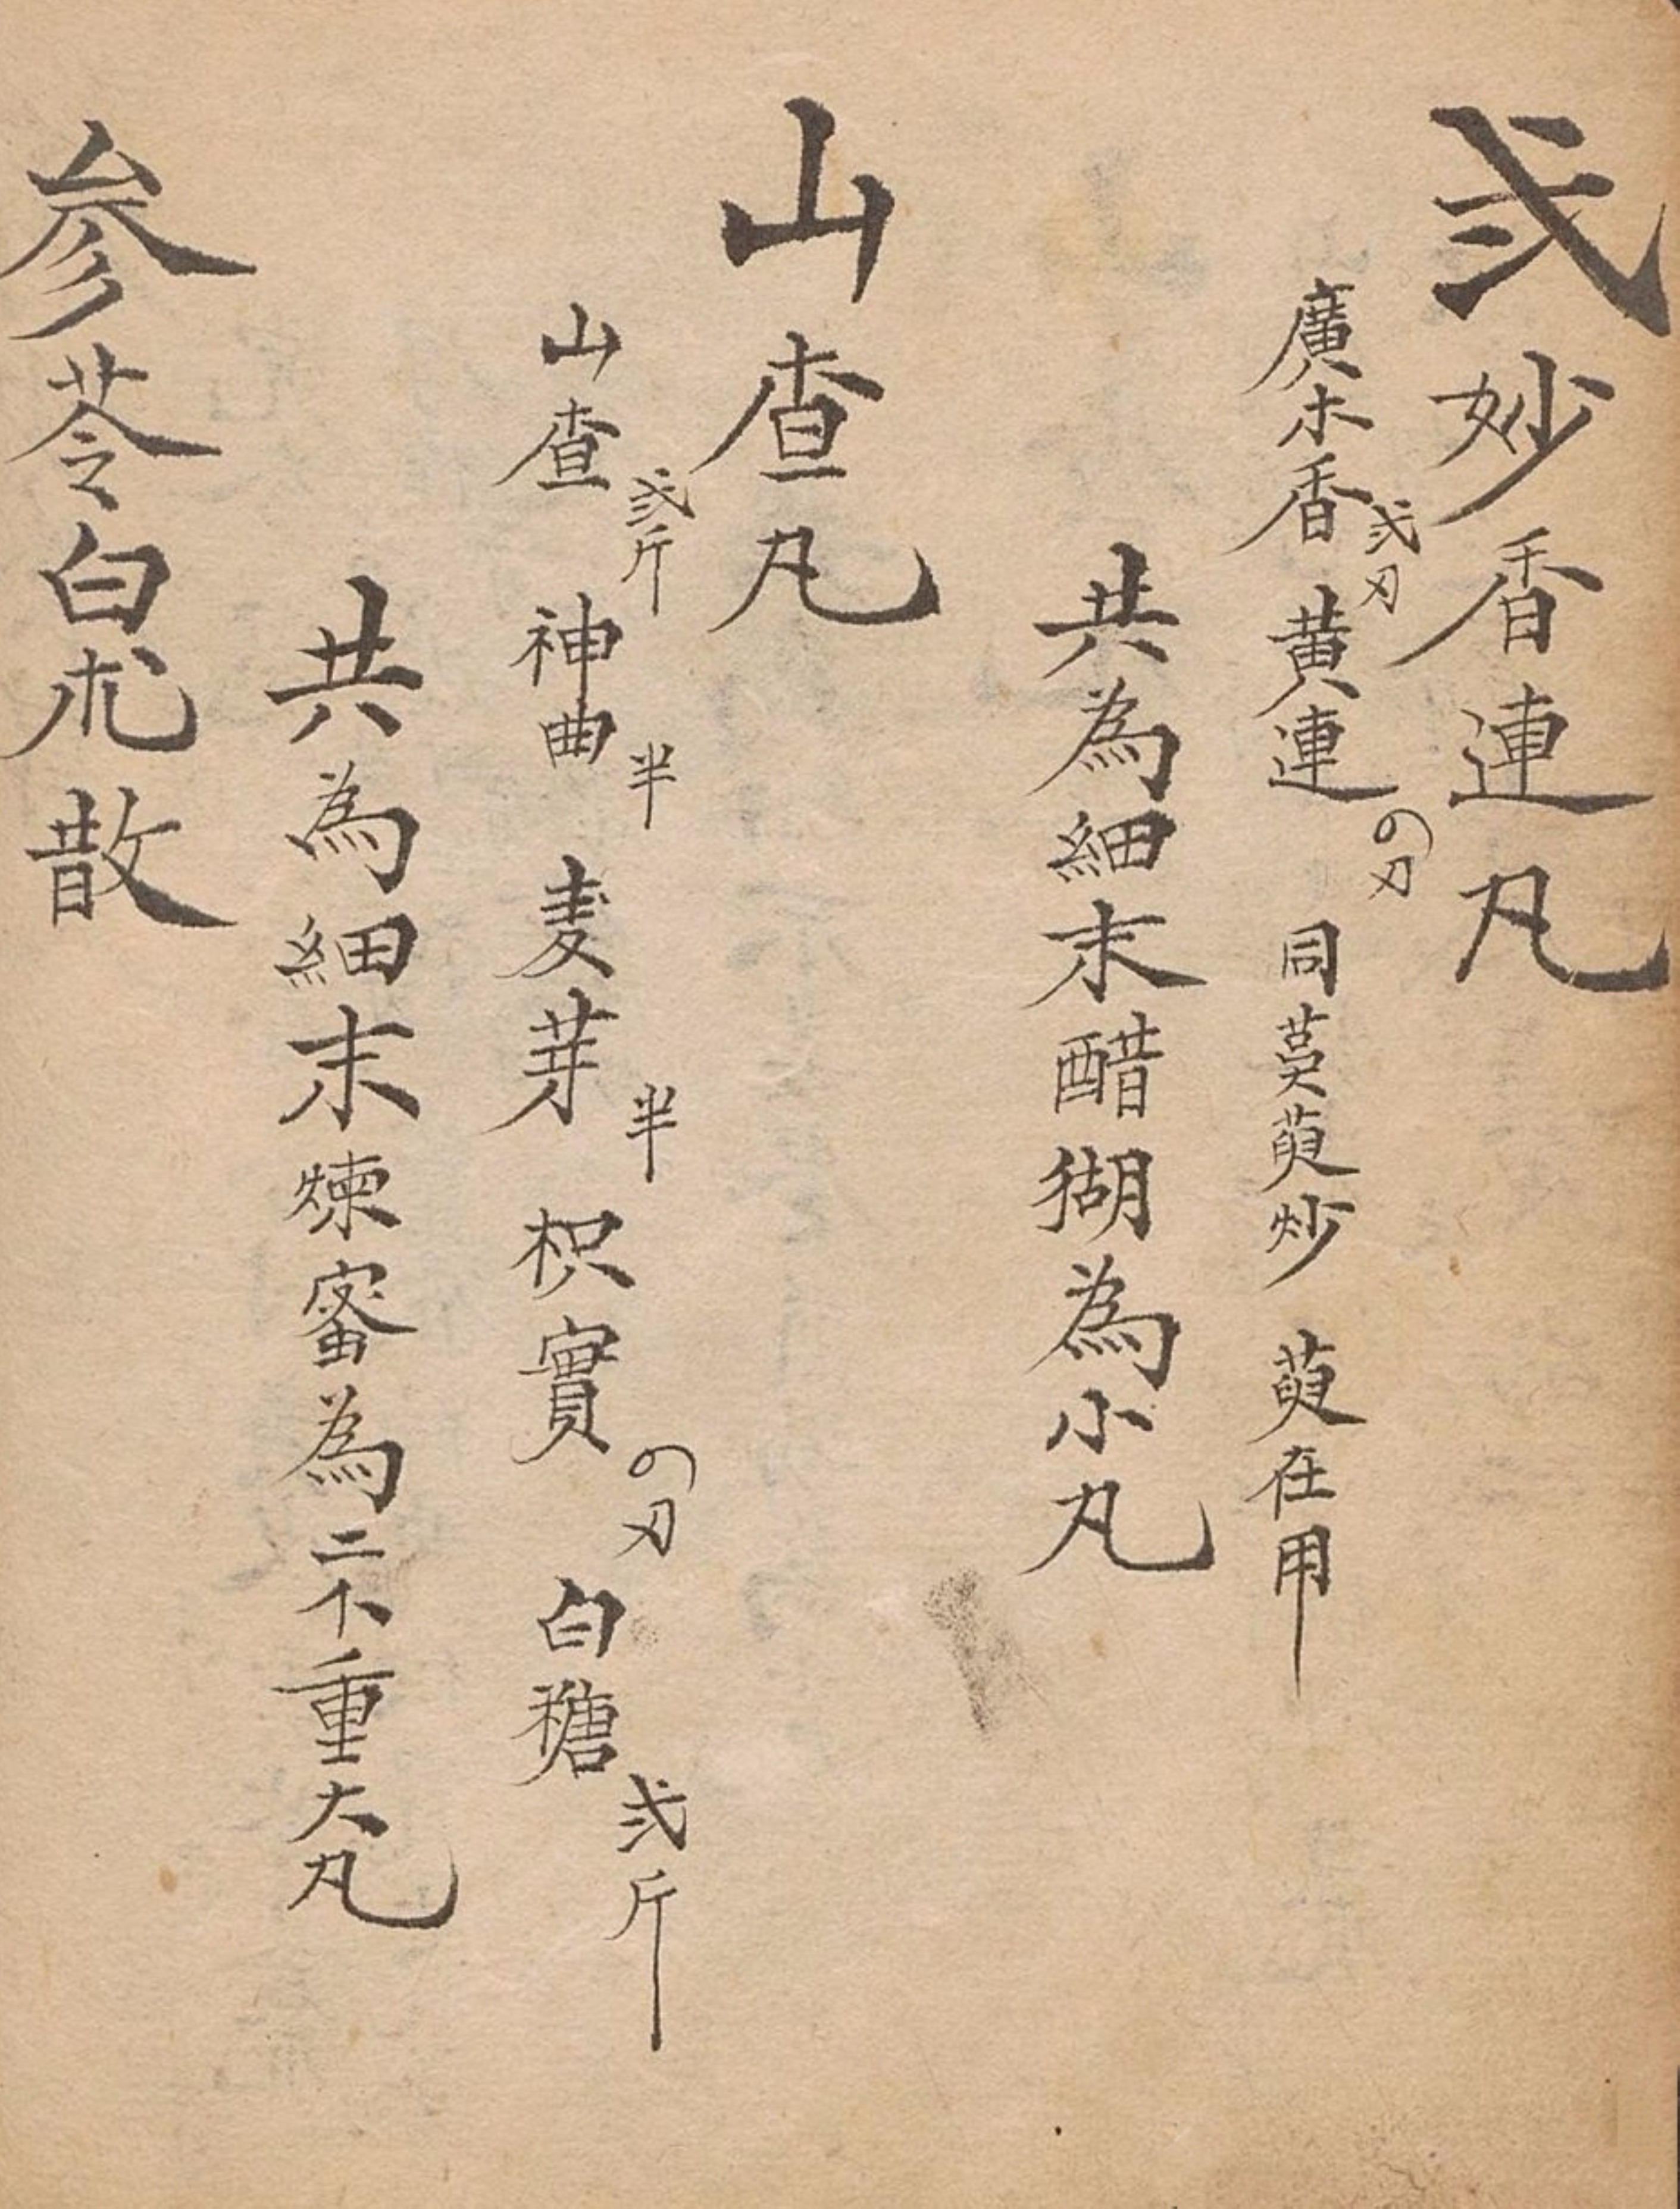 弍妙香連丸
廣木香弍刃 黄連の刃 同茣萸炒 萸在用
共為細末醋猢為小丸
山查丸
山查弍斤 神曲半 麦芽半 枳實の刃 白糖弍斤
共為細末煉蜜為二不重大丸
参苓白朮散